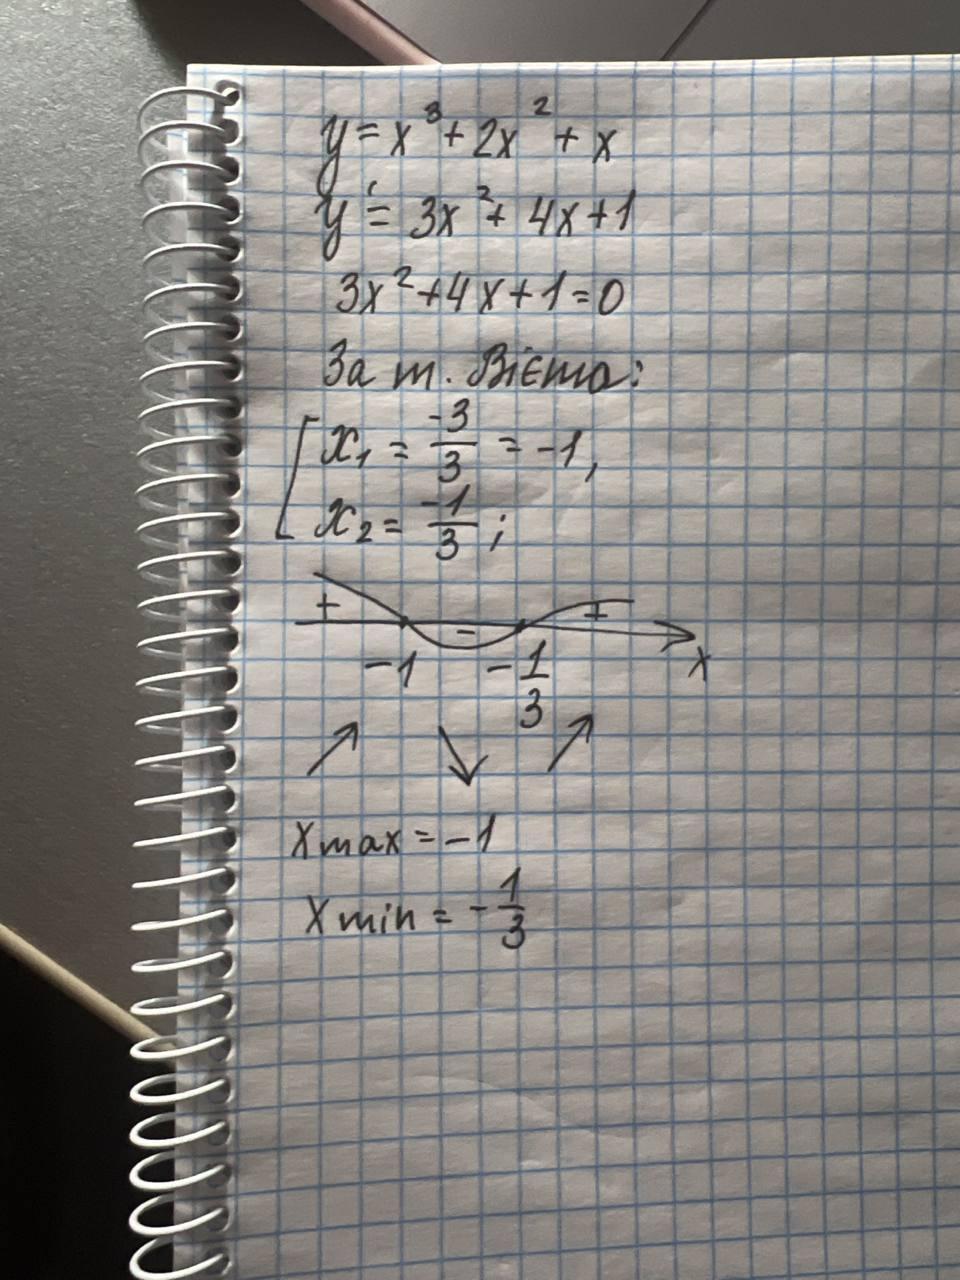 y = x³ + 2x² + x
y' = 3x² + 4x + 1
3x² + 4x + 1 = 0
За т. Вієта:
[ x₁ = -3/3 = -1,
x₂ = -1/3 ;
+ - +
-1 -1/3 x
↗ ↘ ↗
x max = -1
x min = -1/3